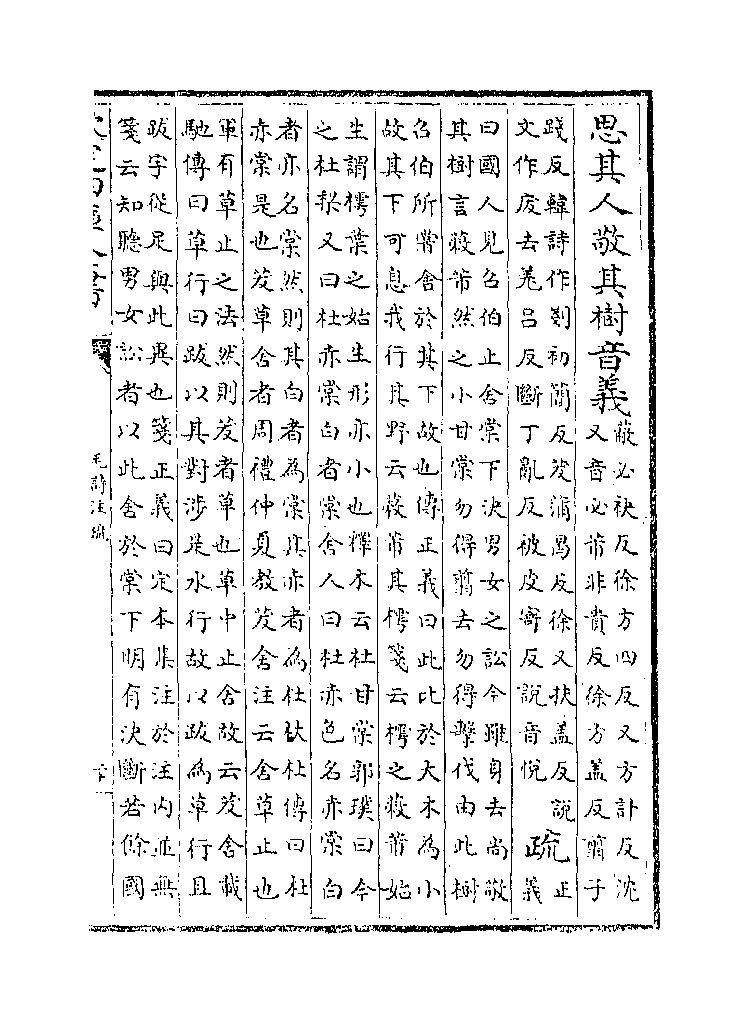 思其人敬其樹音義
蔽必袂反徐方四反又方計反沈
又音必芾非貴反徐方蓋反翦子
踐反韓詩作剗初簡反茇蒲曷反徐又扶蓋反說
文作废去羌呂反斷丁亂反被皮寄反說音悅
疏
正
義
曰國人見召伯止舍棠下決男女之訟今雖身去尚敬
其樹言蔽芾然之小甘棠勿得翦去勿得擊伐由此樹
召伯所嘗舍於其下故也傳正義曰此比於大木為小
故其下可息我行其野云蔽芾其樗箋云樗之蔽芾始
生謂樗葉之始生形亦小也釋木云杜甘棠郭璞曰今
之杜梨又曰杜赤棠白者棠舍人曰杜赤色名赤棠白
者亦名棠然則其白者為棠其赤者為杜杕杜傳曰杜
赤棠是也茇草舍者周禮仲夏教茇舍注云舍草止也
軍有草止之法然則茇者草也草中止舍故云茇舍載
馳傳曰草行曰跋以其對涉是水行故以跋為草行且
跋字從足與此異也箋正義曰定本集注於注內並無
箋云知聽男女訟者以此舍於棠下明有決斷若餘國
毛詩注疏